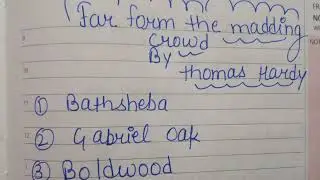 Far form the madding
crowd
By
thomas Hardy
① Bathsheba
② Gabriel Oak
③ Boldwood